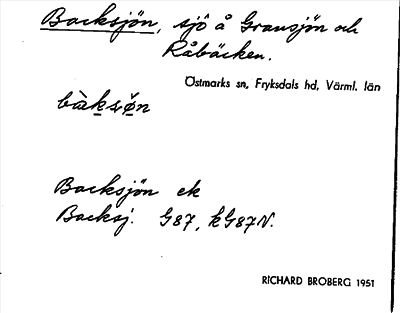 Backsjön, sjö å Gransjön och
Råbäcken.
Östmarks sn, Fryksdals hd, Värml. län
Backsjön ek
Backsj. G87, kG87N.
RICHARD BROBERG 1951